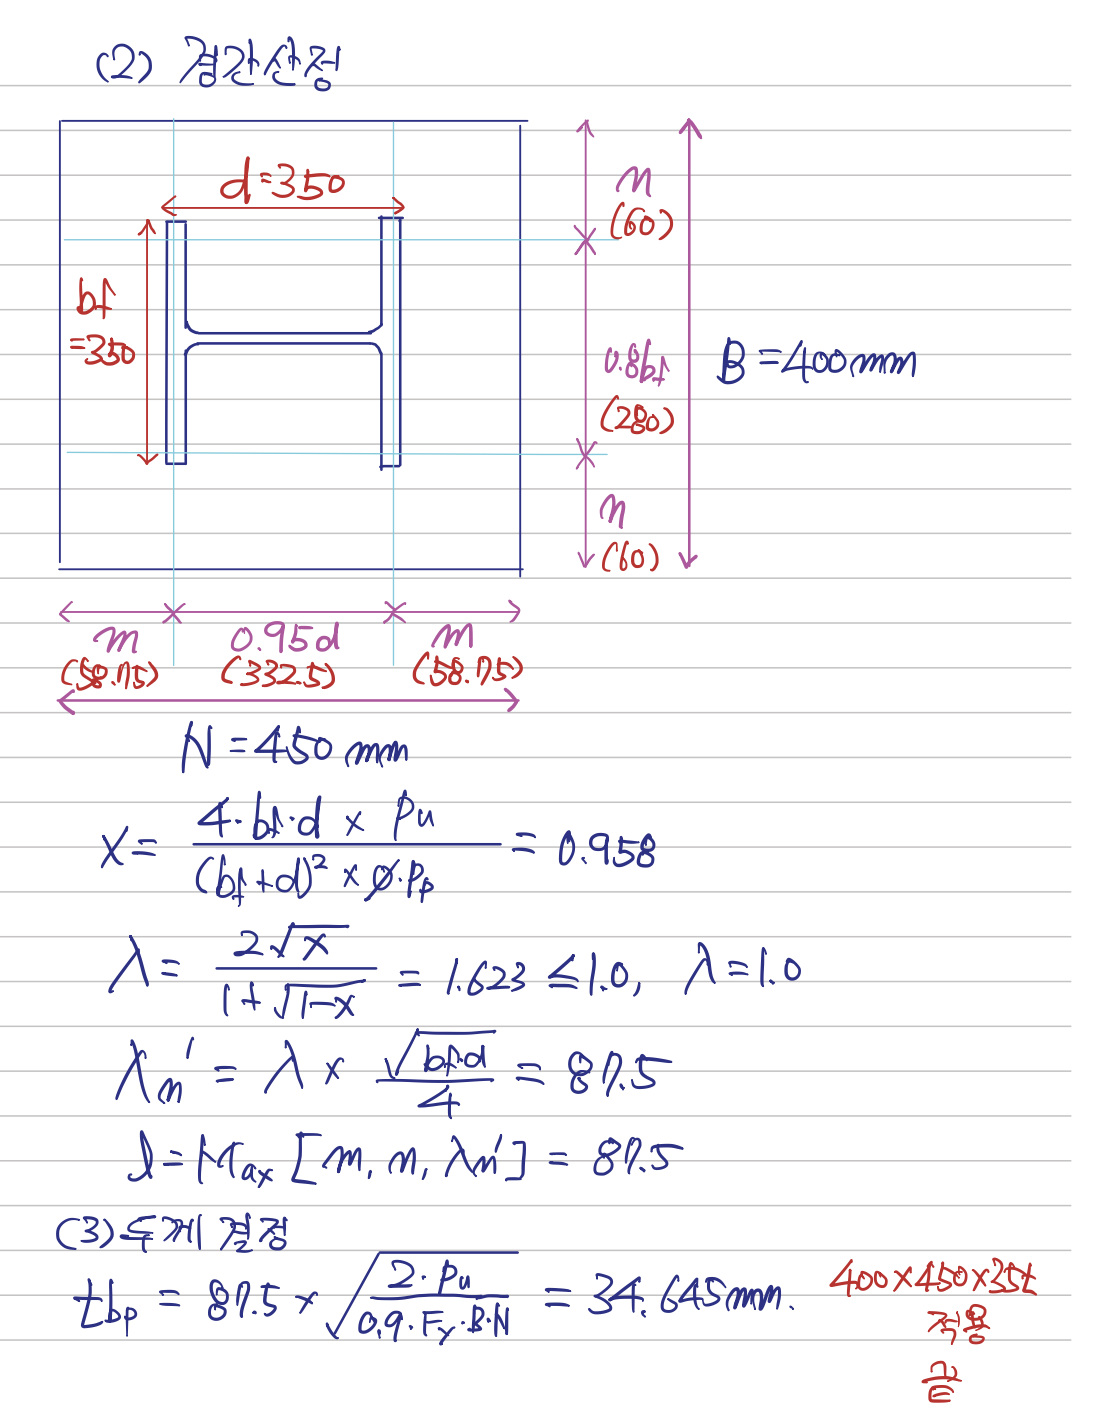 (2) 경간산정
d=350
m
(60)
bf
=350
0.8bf
(280)
B=400mm
n
(60)
m 0.95d m
(58.75) (332.5) (58.75)
N=450mm
X = 4·bf·d × Pu / (bf+d)² × ø·Pp = 0.958
λ = 2√x / 1+√1-x = 1.623 ≤ 1.0, λ=1.0
λn' = λ × √bf·d / 4 = 87.5
l = Max [m, n, λn'] = 87.5
(3) 두께 결정
tbp = 87.5 × √2·Pu / 0.9·Fy·B·N = 34.645mm.
400×450×35t
적용
끝